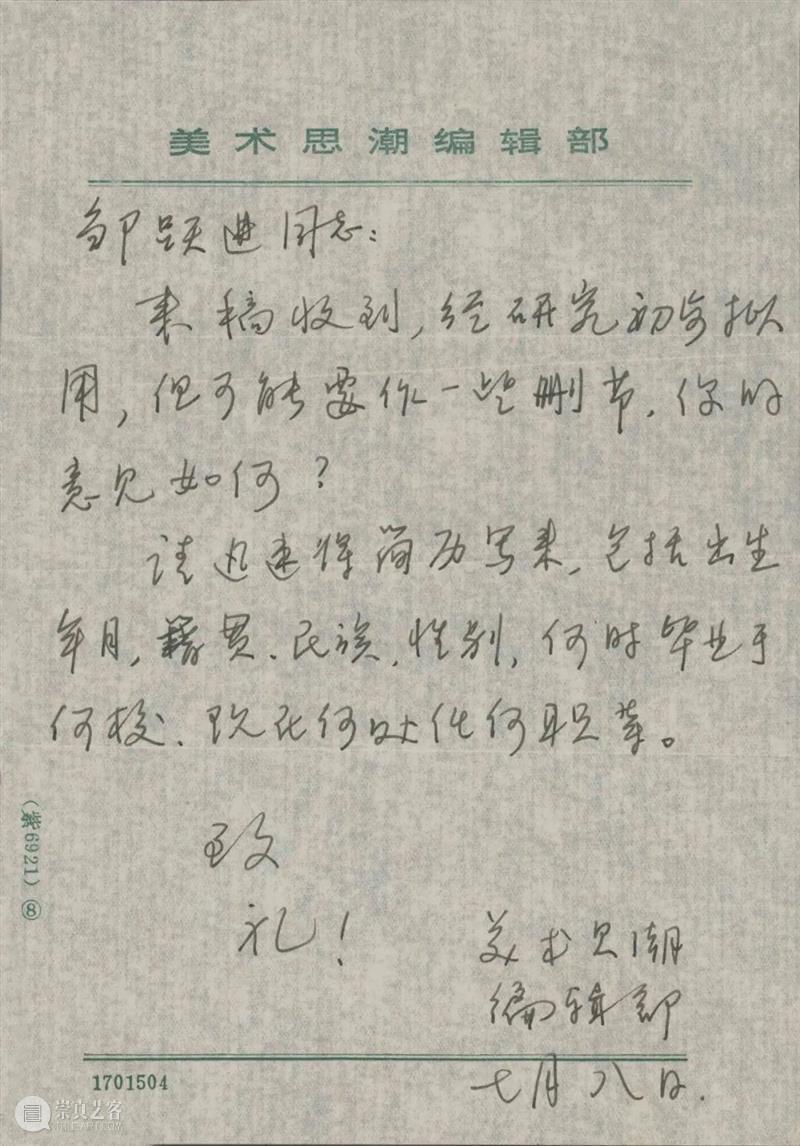 美术思潮编辑部
邹跃进同志：
来稿收到，经研究初步拟
用，但可能要作一些删节，你的
意见如何？
请迅速将简历写来，包括出生
年月，籍贯、民族，性别，何时毕业于
何校、现在何处任何职等。
致
礼！
美术思潮
编辑部
七月八日.
（紫6921）⑧
1701504
崇真艺客